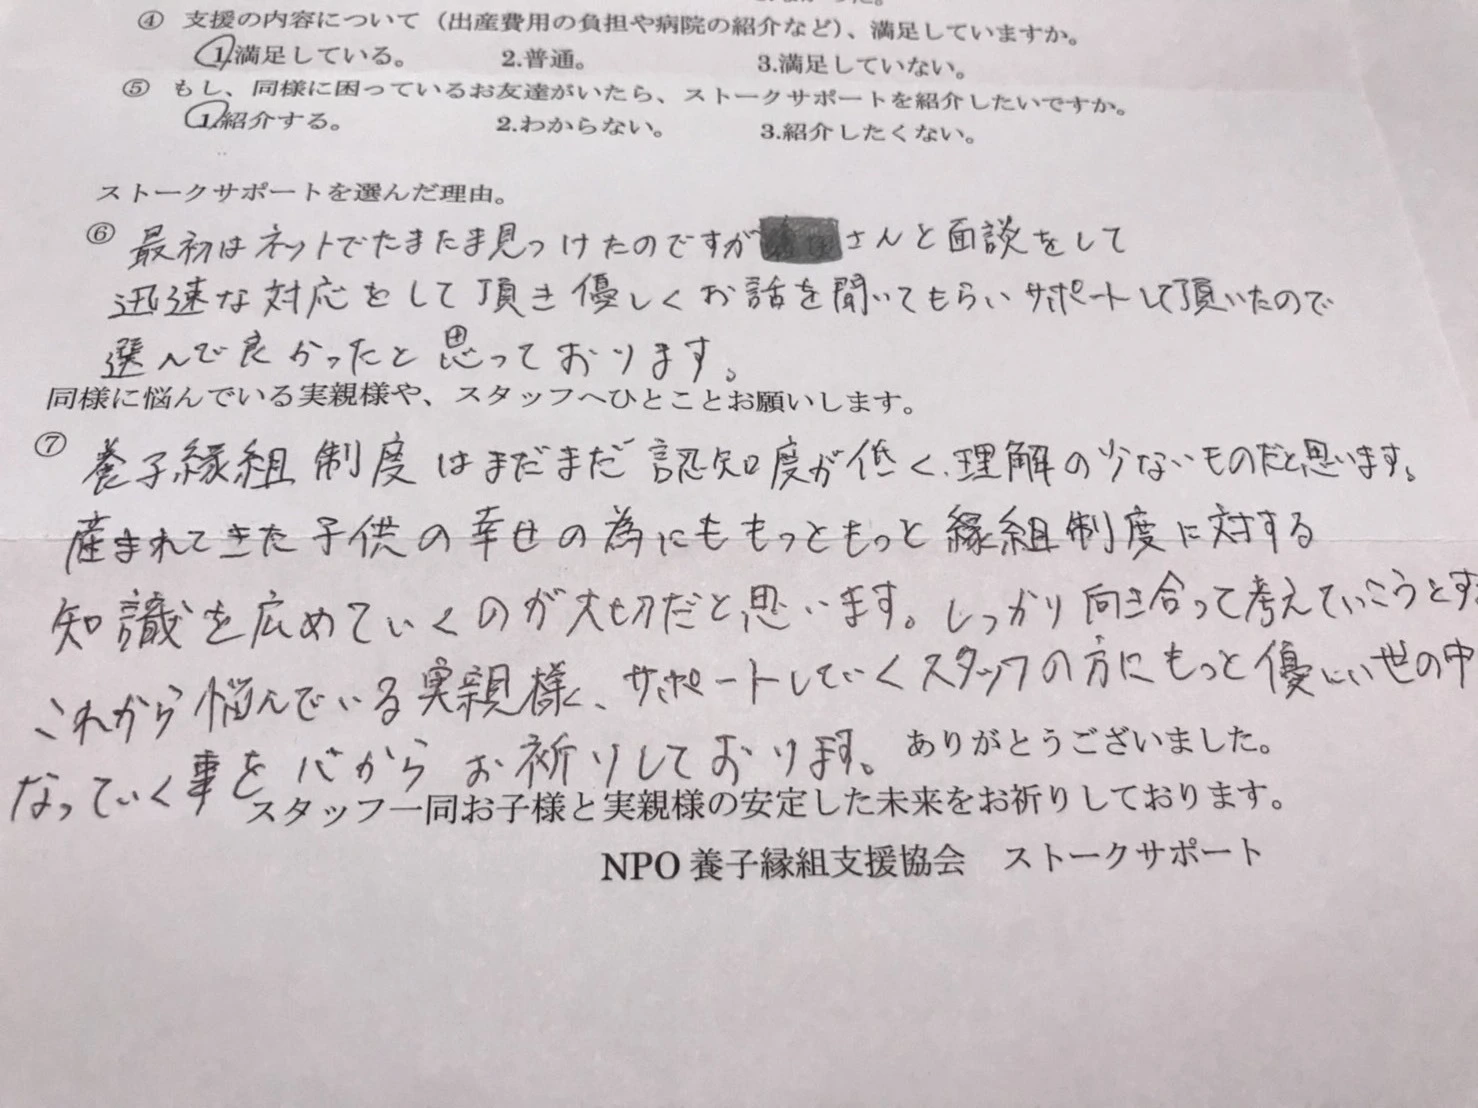 ④ 支援の内容について（出産費用の負担や病院の紹介など）、満足していますか。
1.満足している。 2.普通。 3.満足していない。
⑤ もし、同様に困っているお友達がいたら、ストークサポートを紹介したいですか。
1.紹介する。 2.わからない。 3.紹介したくない。
ストークサポートを選んだ理由。
⑥ 最初はネットでたまたま見つけたのですが さんと面談をして
迅速な対応をして頂き優しくお話を聞いてもらいサポートして頂いたので
選んで良かったと思っております。
同様に悩んでいる実親様や、スタッフへひとことお願いします。
⑦ 養子縁組制度はまだまだ認知度が低く、理解の少ないものだと思います。
産まれてきた子供の幸せの為にももっともっと縁組制度に対する
知識を広めていくのが大切だと思います。しっかり向き合って考えていこうとす
これから悩んでいる実親様、サポートしていくスタッフの方にもっと優しい世の中
なっていく事を心からお祈りしております。 ありがとうございました。
スタッフ一同お子様と実親様の安定した未来をお祈りしております。
NPO 養子縁組支援協会 ストークサポート